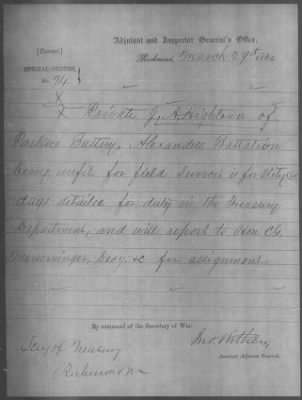 Adjutant and Inspector General's Office,
[Extract]
Richmond, March 29th 186
SPECIAL ORDERS,
No. 74
X
X Private J. A. Hightower of
Parkers Battery, Alexanders Battalion
being unfit for field service is for Sixty (60)
days detailed for duty in the Treasury
Department, and will report to Hon C. G.
Memminger, Secy. &c for assignment.
By command of the Secretary of War.
Jno. Withers
Assistant Adjutant General.
Secy of Treasury
Richmond